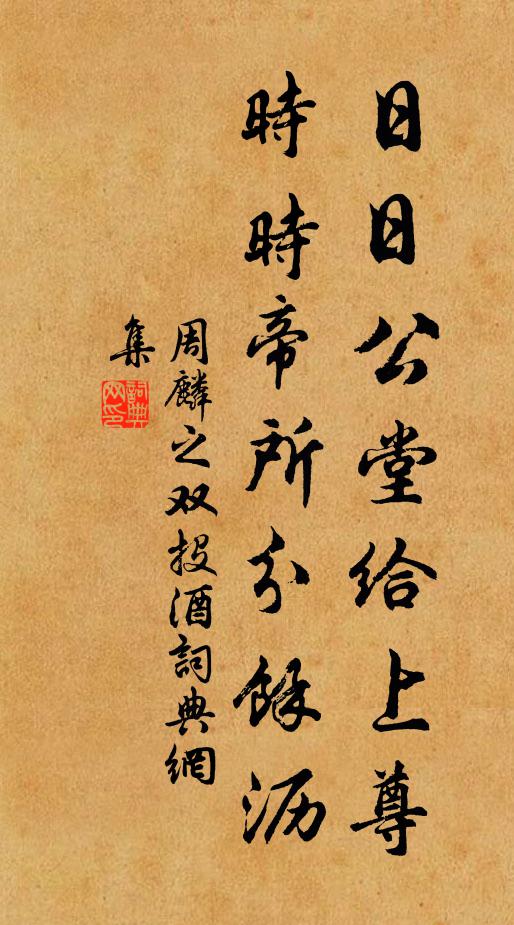 日日公堂给上尊
時時帝所分餘沥
周麟之双投酒詞典網
集
詞典
网印